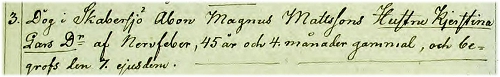 3. Dög i Skabersjö Åbon Magnus Mattsons Hustru Kjerstina
Lars Dr. af Nervfeber, 45 år och 4. månader gammal, och be-
grofs den 7. ejusdem.